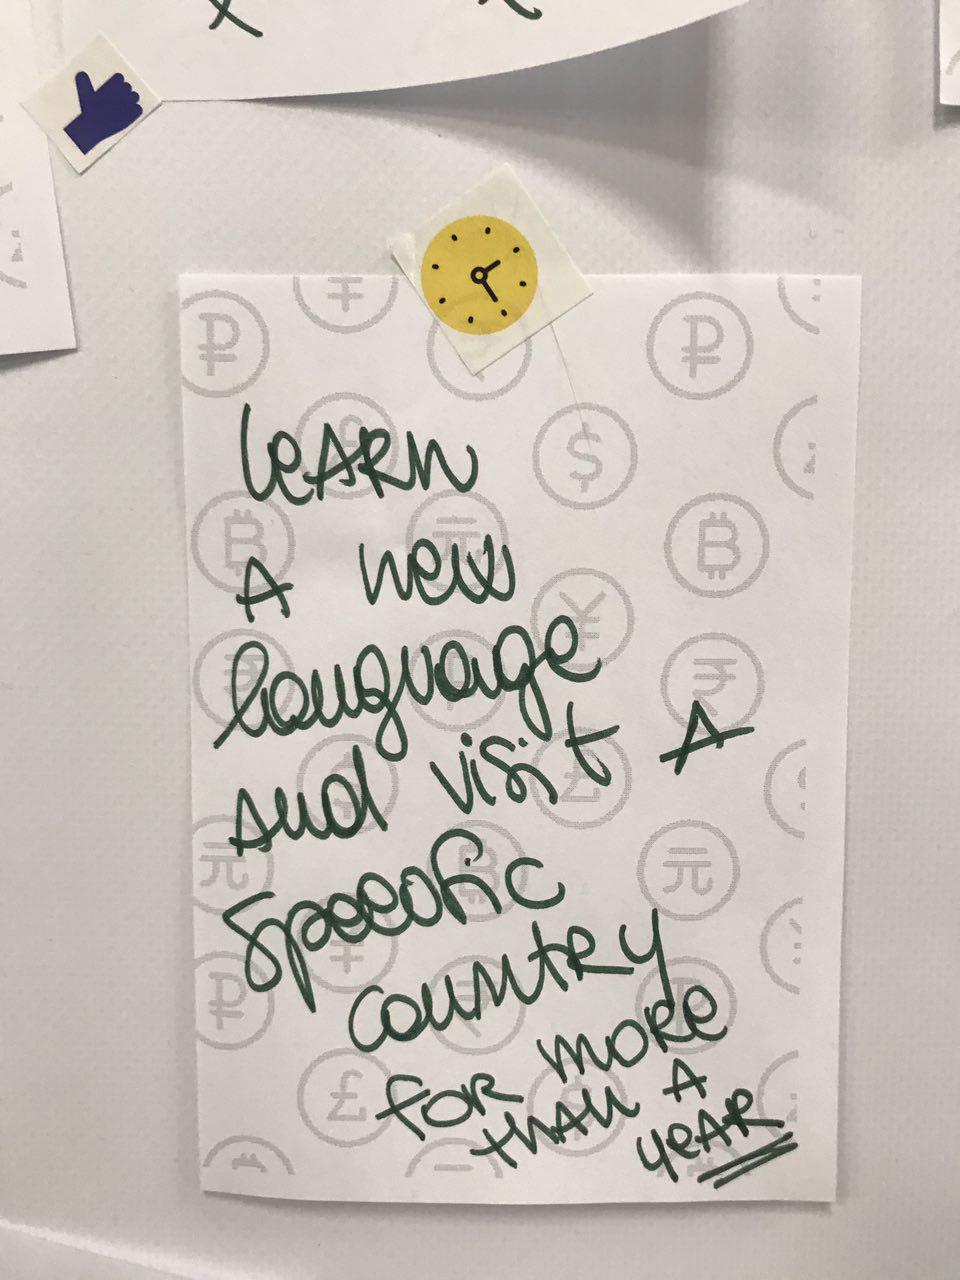 LeARN
A new
language
And visit A
Specific
country
FOR MORE
than A
yeAR